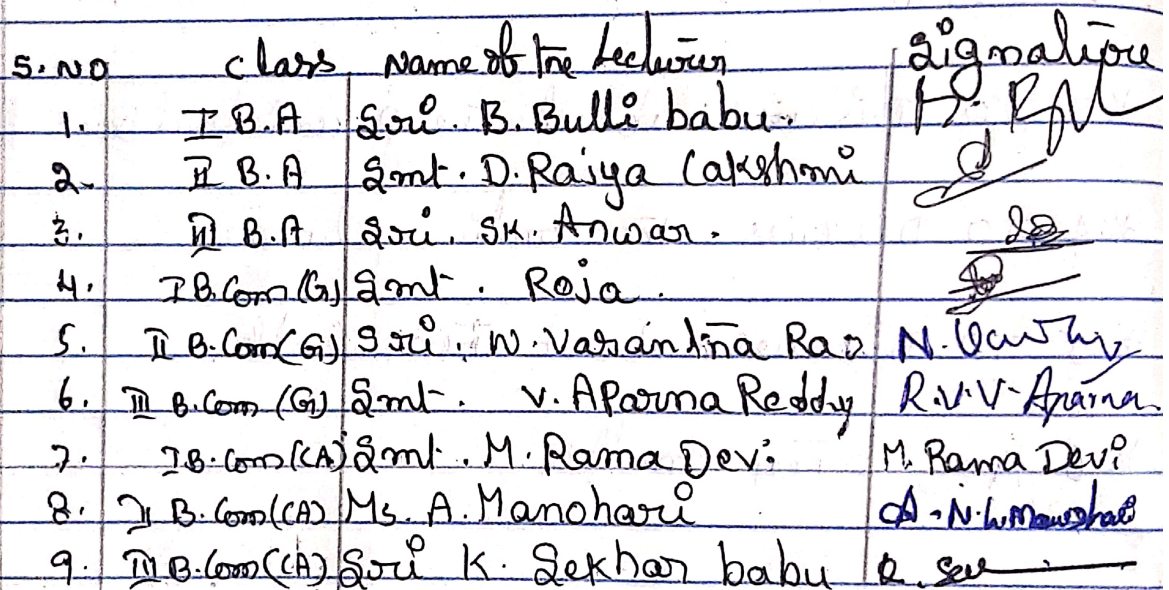 S.NO class Name of the Lecturer Signature
1. I B.A Sri. B. Bulli babu.
2. II B.A Smt. D. Rajya Lakshmi
3. III B.A Sri. SK. Anwar.
4. I B.Com (G) Smt. Roja.
5. II B.Com (G) Sri. N. Vasantha Rao N.
6. III B.Com (G) Smt. V. Aparna Reddy R.V.V. Aparna
7. I B.Com (CA) Smt. M. Rama Devi M. Rama Devi
8. II B.Com (CA) Ms. A. Manohari
9. III B.Com (CA) Sri K. Sekhar babu